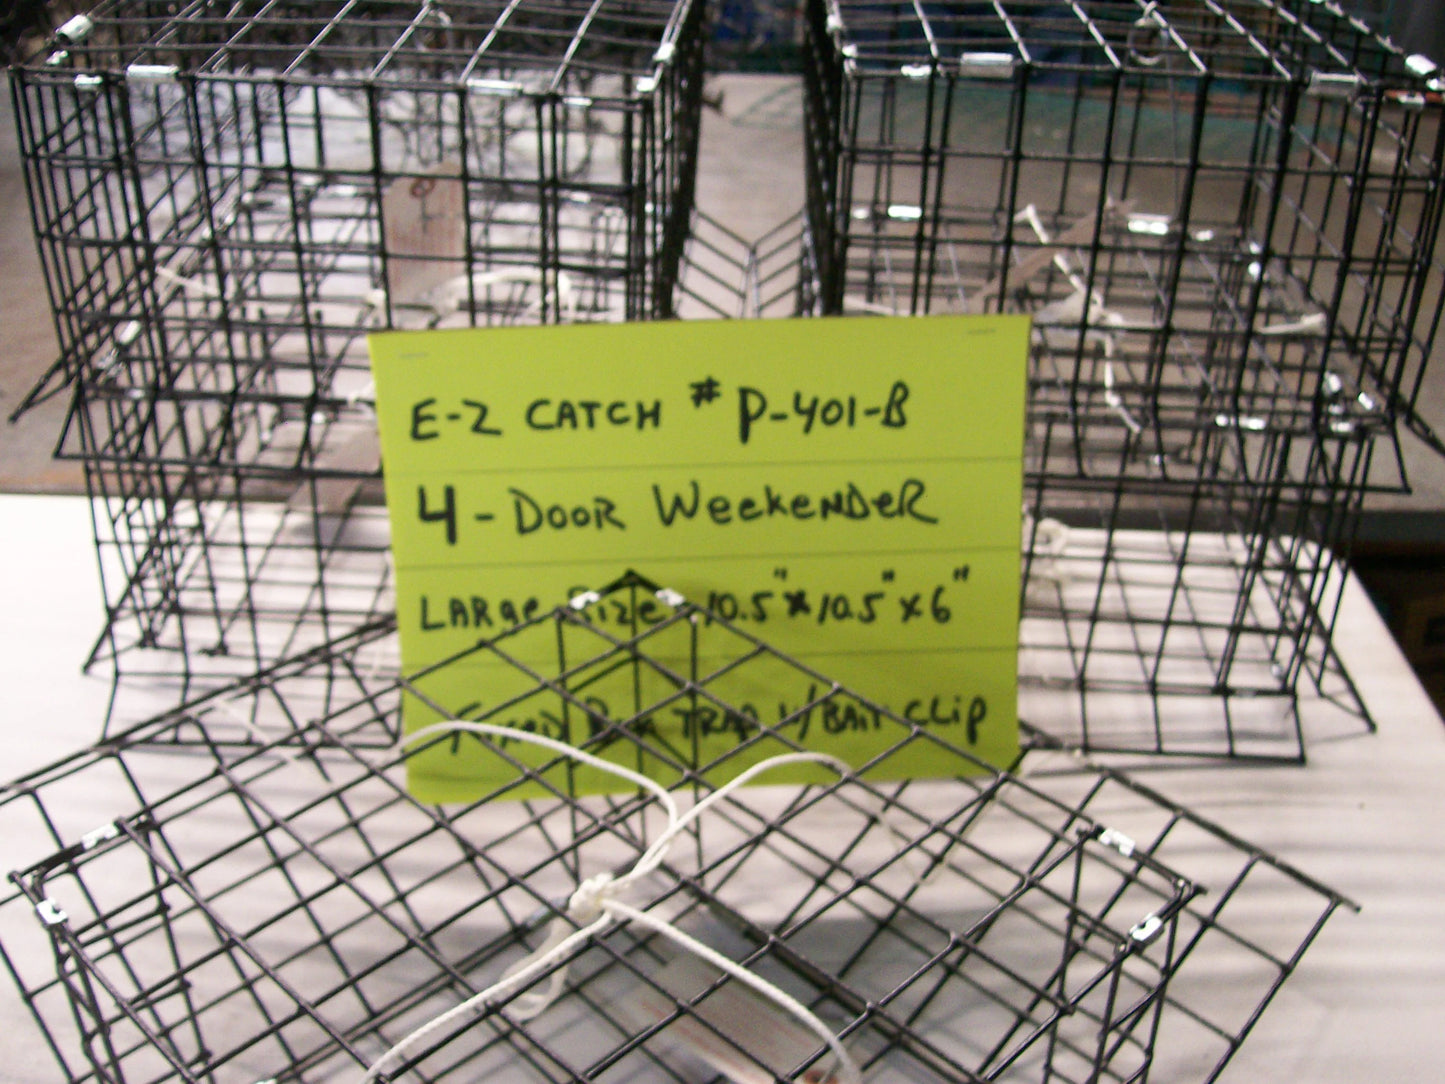 E-Z CATCH # P-401-B
4 - DOOR WeekeNDeR
LARGe Size 10.5" x 10.5" x 6"
Fixed Box TRAP w/ BAit CLip